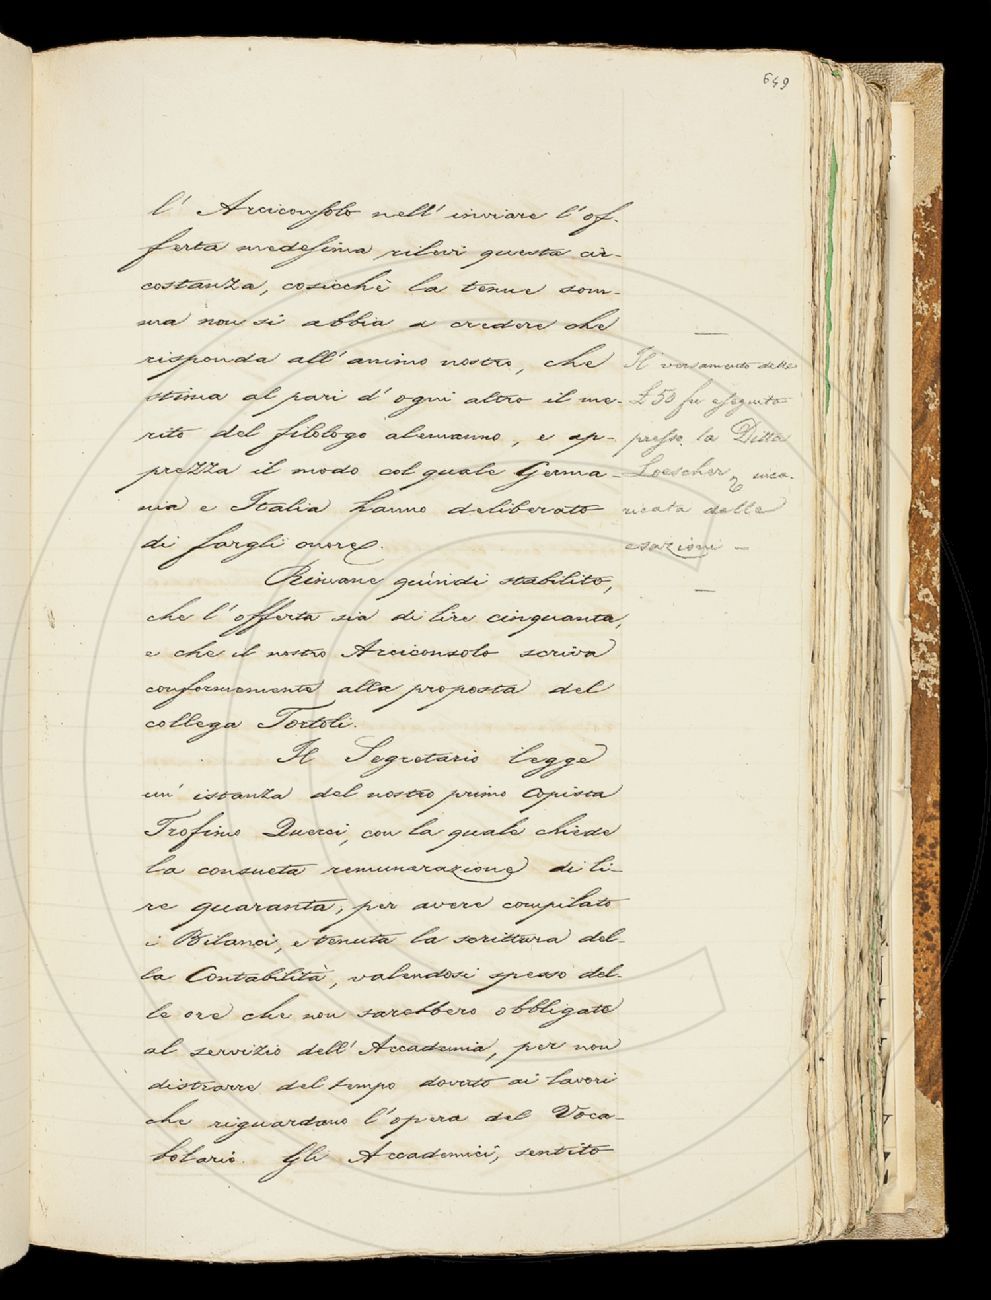 649
l' Arciconsolo nell' inviare l'of-
ferta medesima rilevi questa cir-
costanza, cosicchè la tenue som-
ma non si abbia a credere che
risponda all' animo nostro, che
stima al pari d' ogni altro il me-
rito del filologo alemanno, e ap-
prezza il modo col quale Germa-
nia e Italia hanno deliberato
di fargli onore.
Rimane quindi stabilito,
che l' offerta sia di lire cinquanta,
e che il nostro Arciconsolo scriva
conformemente alla proposta del
collega Tortoli.
Il Segretario legge
un' istanza del nostro primo Copista
Trofimo Querci, con la quale chiede
la consueta remunerazione di li-
re quaranta, per avere compilato
i Bilanci, e tenuta la scrittura del-
la Contabilità, valendosi spesso del-
le ore che non sarebbero obbligate
al servizio dell' Accademia, per non
distrarre del tempo dovuto ai lavori
che riguardano l' opera del Voca-
bolario. Gli Accademici, sentito
Il versamento delle
£ 50 fu eseguito
presso la Ditta
Loescher, inca-
ricata delle
esazioni —